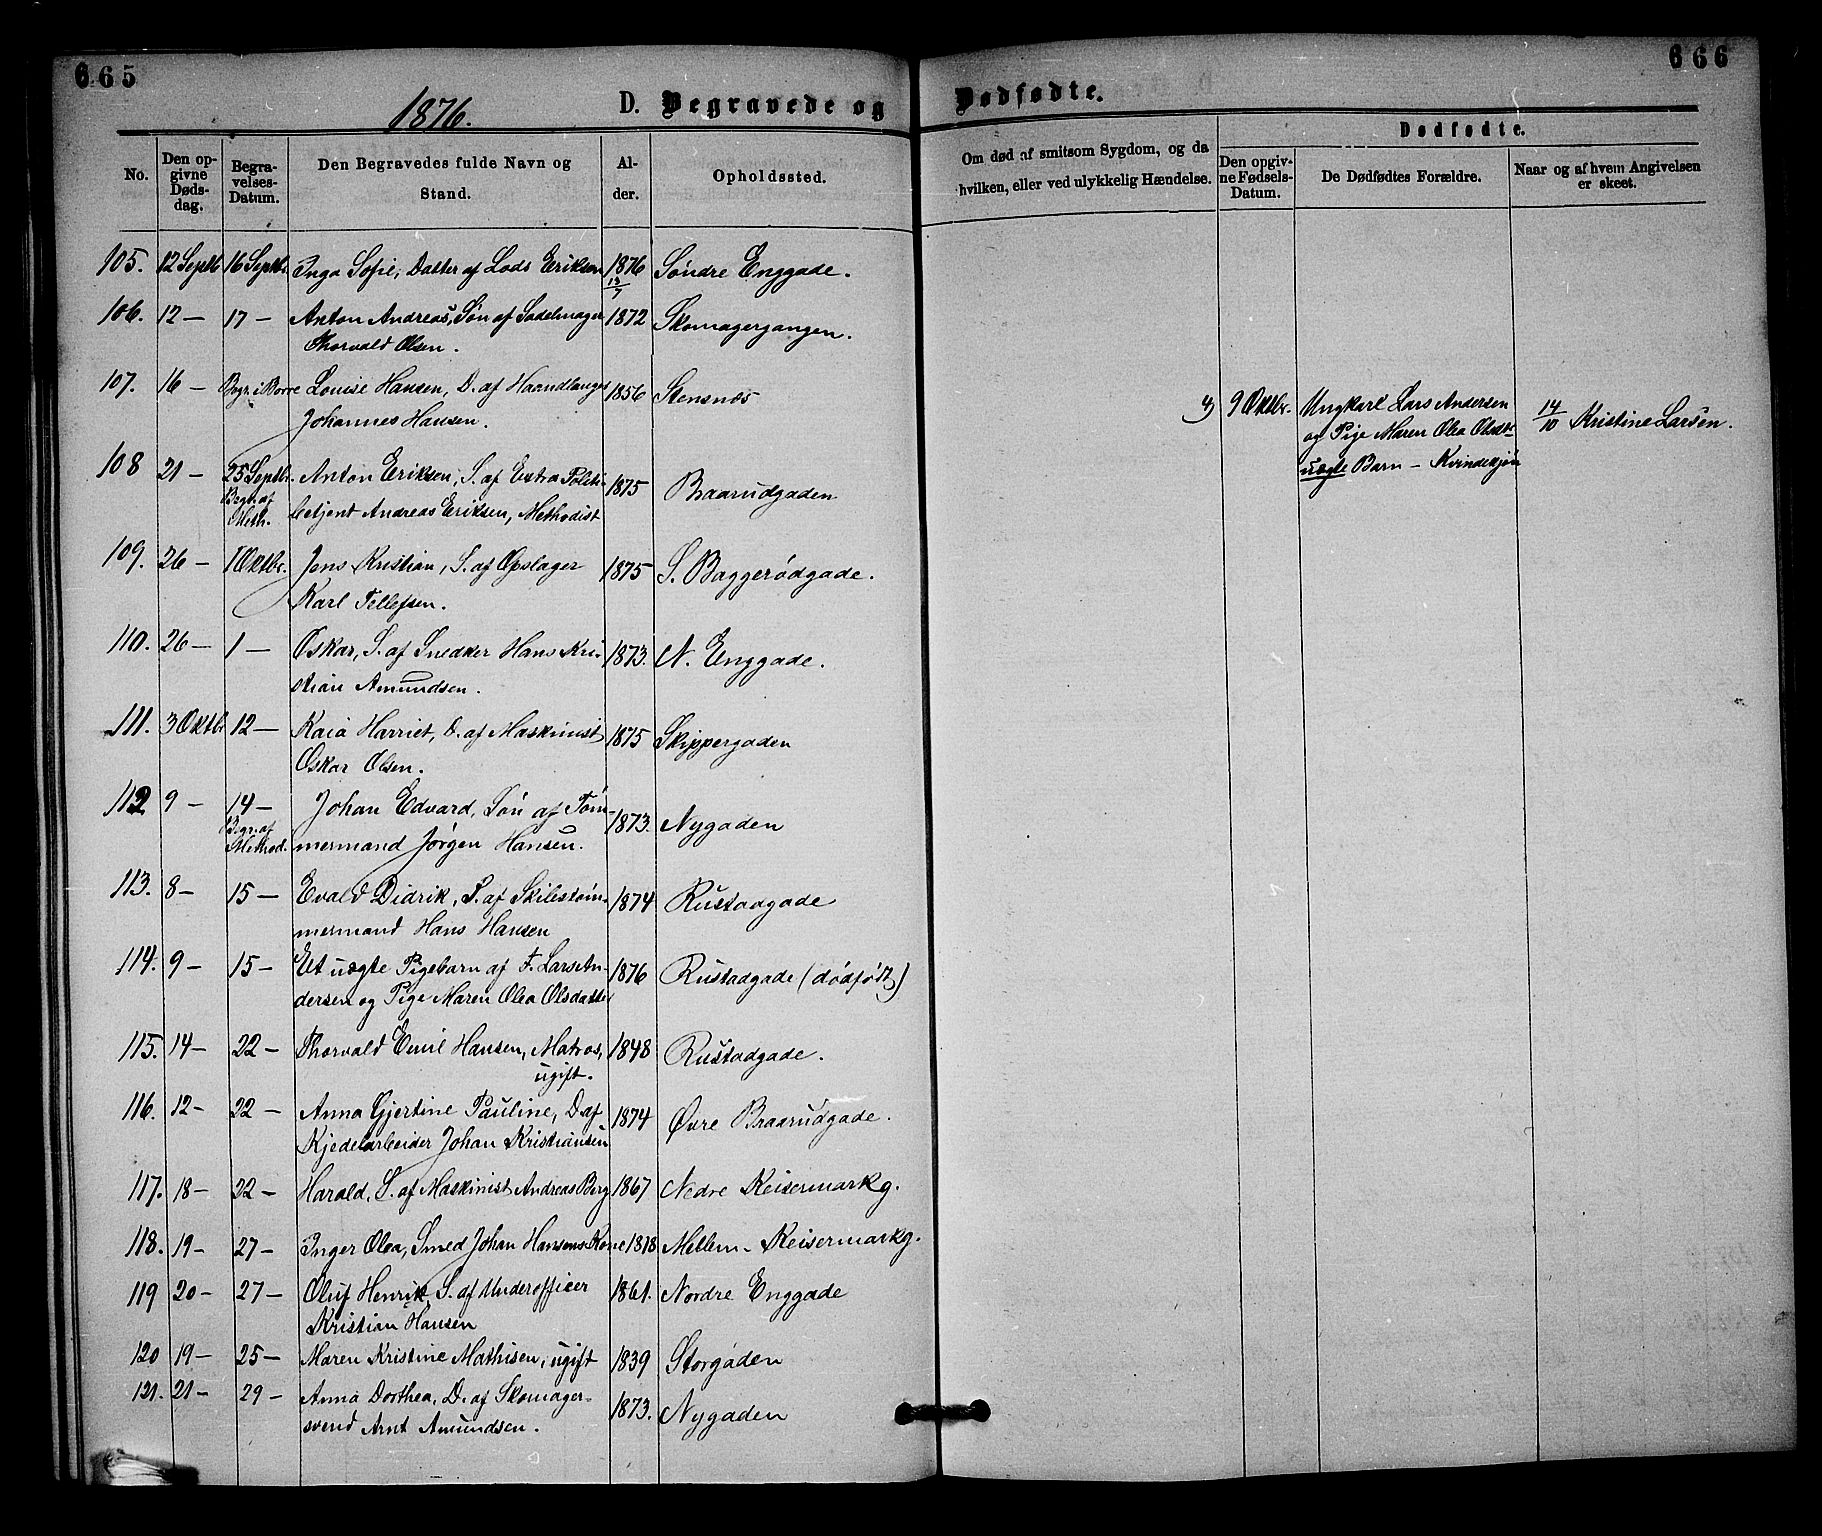 665
666
1876.
D. Begravede og Dødfødte.
No.
Den opgivne Dødsdag.
Begravelses-Datum.
Den Begravedes fulde Navn og Stand.
Alder.
Opholdssted.
Om død af smitsom Sygdom, og da hvilken, eller ved ulykkelig Hændelse.
Dødfødte.
Den opgivne Fødsels-Datum.
De Dødfødtes Forældre.
Naar og af hvem Angivelsen er skeet.
105. 12 Septb 16 Septbr. Inga Sofie, Datter af Lods Eriksen 1876 13/7 Søndre Enggade.
106. 12 — 17 — Anton Andreas, Søn af Sadelmager 1872 Skomagergangen.
Thorvald Olsen.
107. 16 — Begr. i Borre Louise Hansen, D. af Haandlanger 1856 Stensnæs
Johannes Hansen.
4) 9 Oktbr. Ungkarl Lars Andersen 14/10 Kristine Larsen.
og Pige Maren Olea Olsdtr
uægte Barn — Kvindekjøn
108 21 — 25 Septbr. Anton Eriksen, S. af Extra Politi- 1875 Braarudgaden
Begr. af Meth. betjent Andreas Eriksen, Methodist
109. 26 — 1 Oktbr. Jens Kristian, S. af Opslager 1875 S. Baggerødgade.
Karl Tellefsen.
110. 26 — 1 — Oskar, S. af Snedker Hans Kri- 1873. N. Enggade.
stian Amundsen.
111. 3 Oktbr 12 — Kaia Harriet, D. af Maskinist 1875 Skippergaden
Oskar Olsen.
112 9 — 14 — Johan Edvard, Søn af Töm- 1873. Nygaden
Begr. af Method. mermand Jörgen Hansen.
113. 8 — 15 — Evald Didrik, S. af Skibstöm- 1874 Rustadgade
mermand Hans Hansen
114. 9 — 15 — Et uægte Pigebarn af F. Lars An- 1876 Rustadgade (dødfødt)
dersen og Pige Maren Olea Olsdatter
115. 14 — 22 — Thorvald Emil Hansen, Matros, 1848 Rustadgade.
ugift.
116. 12 — 22 — Anna Gjertine Pauline, D. af 1874 Øvre Braarudgade.
Kjedelarbeider Johan Kristiansen
117. 18 — 22 — Harald, S. af Maskinist Andreas Berg 1867 Nedre Keisermarkg.
118. 19 — 27 — Inger Olea, Smed Johan Hansens Kone 1818 Mellem- Keisermarkg.
119 20 — 27 — Oluf Henrik, S. af Underofficer 1861. Nordre Enggade
Kristian Hansen
120 19 — 25 — Maren Kristine Mathisen, ugift 1839 Storgaden
121. 21 — 29 — Anna Dorthea, D. af Skomager- 1873. Nygaden
svend Arnt Amundsen.